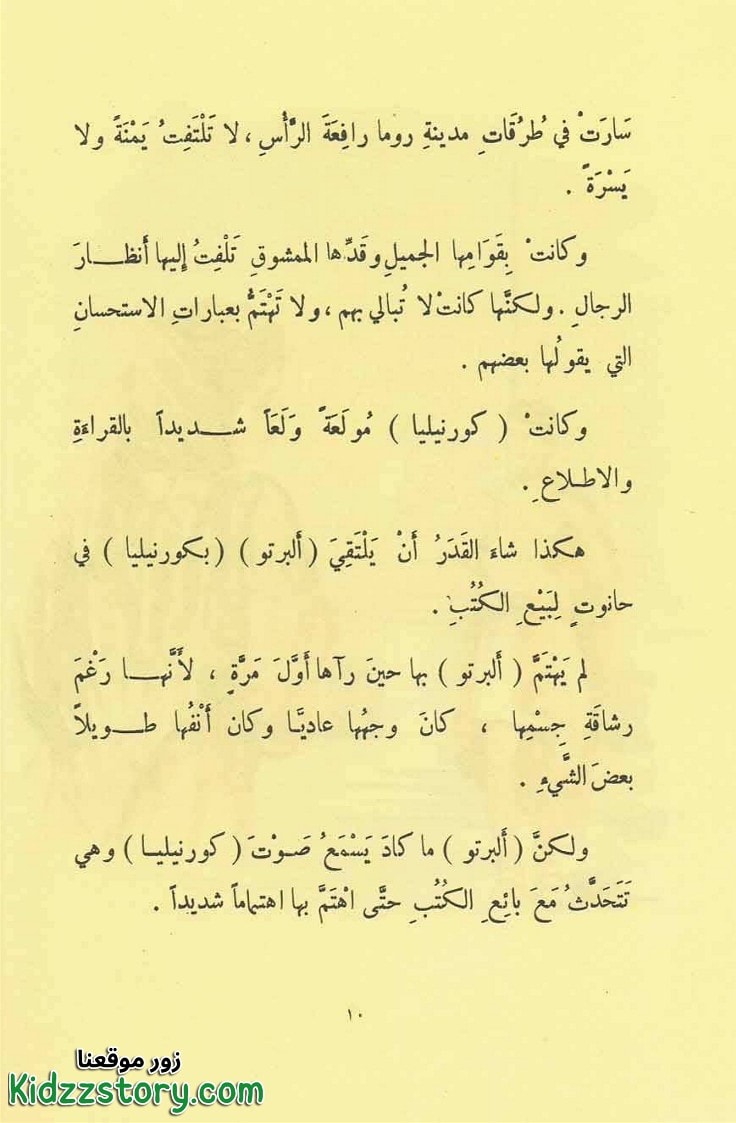 سَارَتْ في طُرُقَاتِ مدينةِ روما رافِعَةَ الرَّأْسِ ، لا تَلْتَفِتُ يَمْنَةً ولا
يَسْرَةً .
وكانتْ بِقَوَامِها الجميلِ وقَدِّها الممشوقِ تَلْفِتُ إليها أنظـــارَ
الرجالِ . ولكنَّها كانتْ لا تُبالي بهم ، ولا تَهْتَمُّ بعباراتِ الاستحسانِ
التي يقولُها بعضهم .
وكانتْ ( كورنيليا ) مُولَعَةً وَلَعَاً شـــديداً بالقراءَةِ
والاطـلاعِ .
هكذا شاءَ القَدَرُ أَنْ يَلْتَقِيَ ( ألبرتو ) ( بكورنيليا ) في
حانوتٍ لِبَيْعِ الكُتُبِ .
لم يَهْتَمَّ ( ألبرتو ) بها حينَ رآها أوَّلَ مَرَّةٍ ، لأنَّهـــا رَغْمَ
رشاقَةِ جِسْمِها ، كانَ وجهُها عاديَّا وكان أنْفُها طـــويلاً
بعضَ الشَّيءِ .
ولكنَّ ( ألبرتو ) ما كادَ يَسْمَعُ صَـوْتَ ( كورنيليـا ) وهي
تَتَحَدَّثُ مَعَ بائِعِ الكُتُبِ حتَّى اهْتَمَّ بها اهتماماً شديداً .
١٠
زور موقعنا
Kidzzstory.com